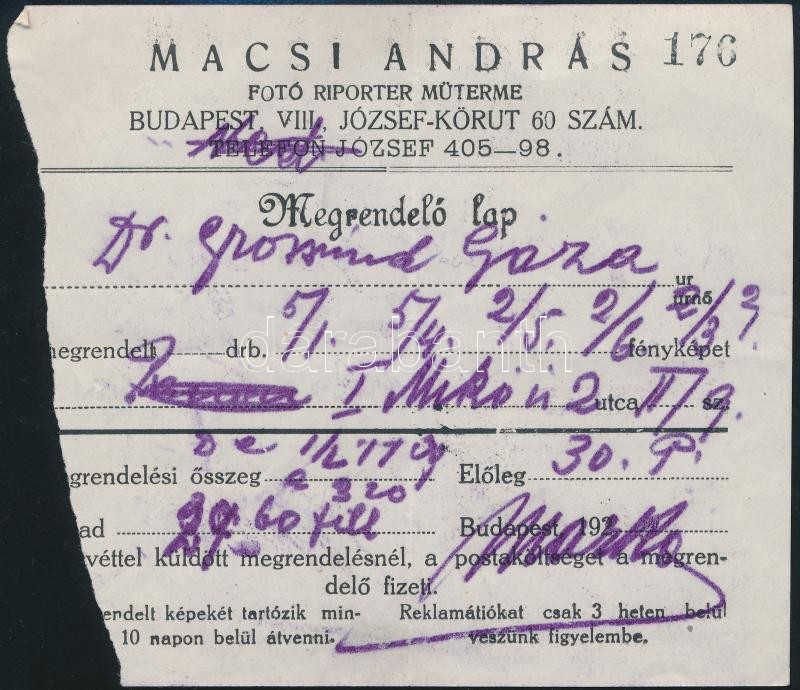 MACSI ANDRÁS 176
FOTÓ RIPORTER MŰTERME
BUDAPEST, VIII., JÓZSEF-KÖRUT 60 SZÁM.
TELEFON JÓZSEF 405—98.
Megrendelő lap
Dr. Géza
ur
urnő
megrendelt drb. 5/1. 5/4. 2/5. 2/6 2/3 fényképet
I Mikó u 2 utca II/9. sz.
grendelési összeg Előleg 30. P.
ad 60 fill Budapest, 192
véttel küldött megrendelésnél, a postaköltséget a megren-
delő fizeti.
endelt képekét tartózik min-
10 napon belül átvenni.
Reklamátiókat csak 3 heten belül
veszünk figyelembe.
darabanth